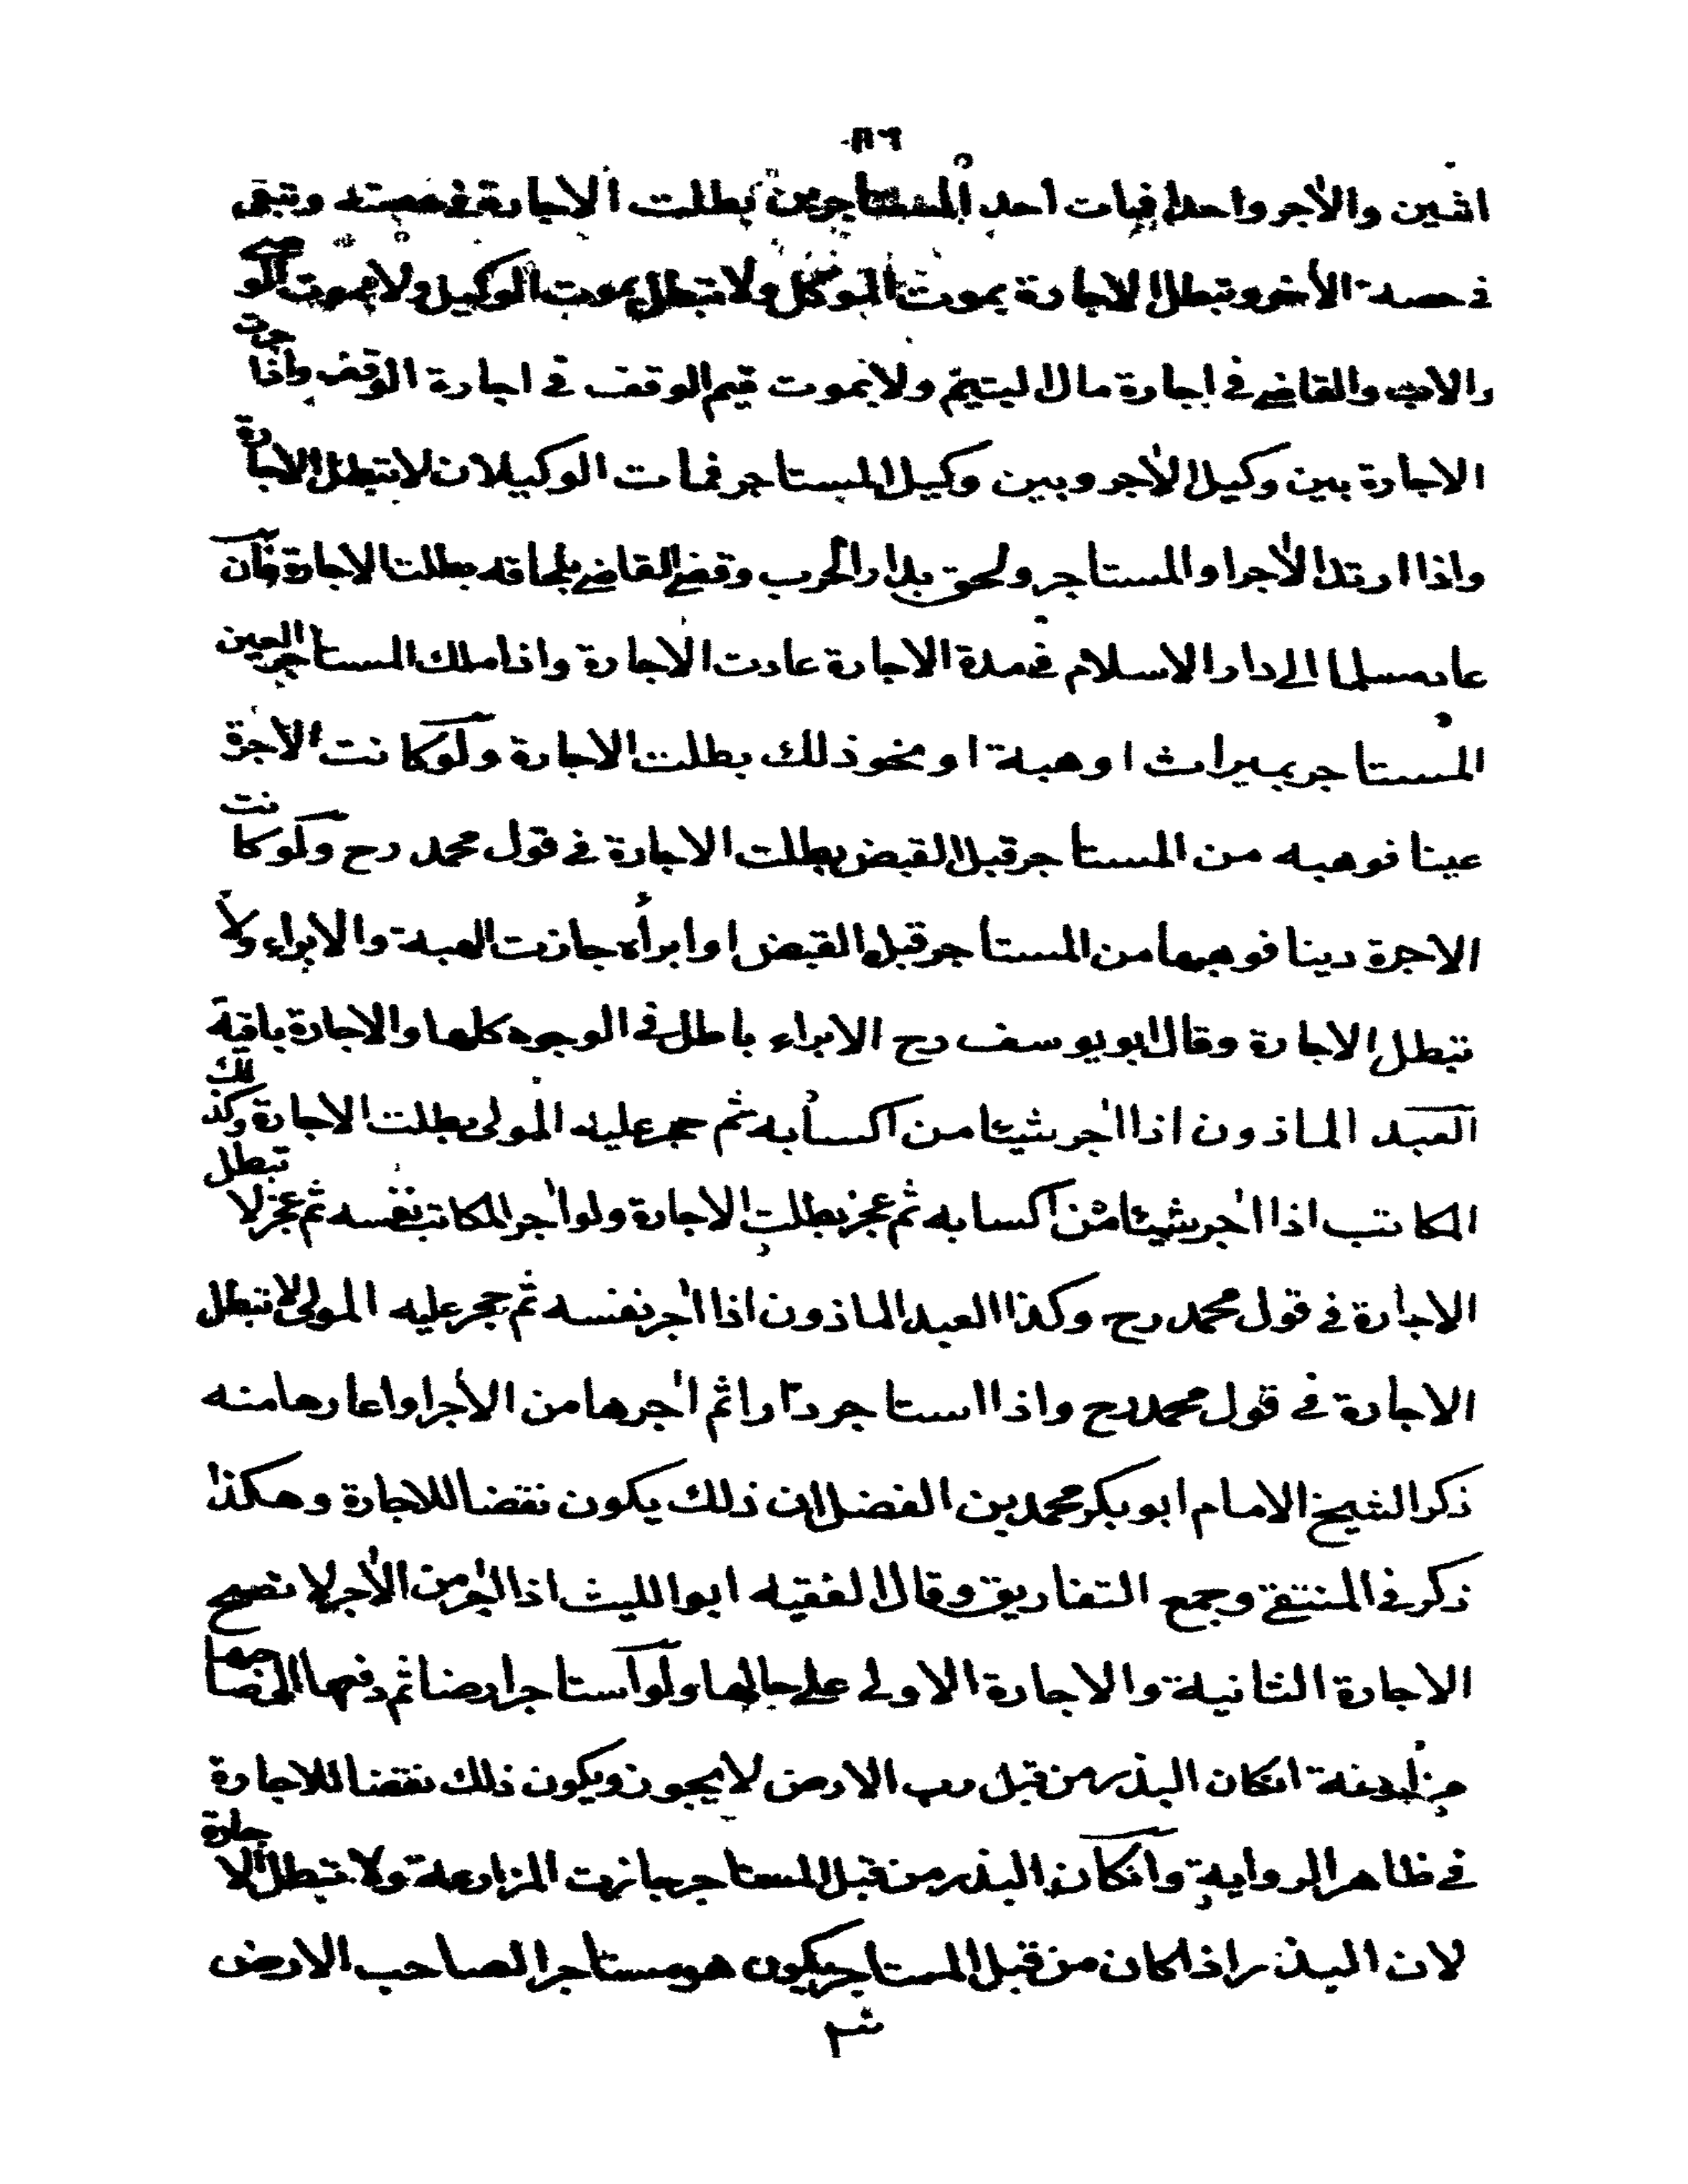 اثنين والاجر واحدا فمات احد المستاجرين بطلت الاجارة في حصته وتبقى
في حصة الأخر وتبطل الاجارة بموت الموكل ولا تبطل بموت الوكيل ولا بموت الوصي
والاب والقاضي في اجارة مال اليتيم ولا بموت قيم الوقف في اجارة الوقف واذا جرت
الاجارة بين وكيل الأجر وبين وكيل المستاجر فمات الوكيلان لا تبطل الاجارة
واذا ارتد الأجر او المستاجر ولحق بدار الحرب وقضى القاضي بلحاقه بطلت الاجارة فان
عاد مسلما الى دار الاسلام في مدة الاجارة عادت الاجارة واذا ملك المستاجر العين
المستاجر بميراث او هبة او نحو ذلك بطلت الاجارة ولو كانت الأجرة
عينا فوهبه من المستاجر قبل القبض بطلت الاجارة في قول محمد رح ولو كانت
الاجرة دينا فوهبها من المستأجر قبل القبض او ابرأه جازت الهبة والابراء ولا
تبطل الاجارة وقال ابو يوسف رح الابراء باطل في الوجوه كلها والاجارة باقية
العبد الماذون اذا اٰجر شيئا من اكسابه ثم حجر عليه المولى بطلت الاجارة وكذلك
المكاتب اذا اٰجر شيئا من اكسابه ثم عجز بطلت الاجارة ولو اٰجر المكاتب نفسه ثم عجز لا تبطل
الاجارة في قول محمد رح وكذا العبد الماذون اذا اٰجر نفسه ثم حجر عليه المولى لا تبطل
الاجارة في قول محمد رح واذا استاجر دارا ثم اٰجرها من الأجر او اعارها منه
ذكر الشيخ الامام ابو بكر محمد بن الفضل ان ذلك يكون نقضا للاجارة وهكذا
ذكر في المنتقى وجمع التفاريق وقال الفقيه ابو الليث اذا اٰجر من الأجر لا تصح
الاجارة الثانية والاجارة الاولى على حالها ولو استاجر ارضا ثم دفعها الى صاحبها
مزارعة انكان البذر من قبل رب الارض لا يجوز ويكون ذلك نقضا للاجارة
في ظاهر الرواية وانكان البذر من قبل المستاجر جازت المزارعة ولا تبطل الاجارة
لان البذر اذا كان من قبل المستاجر يكون هو مستاجرا لصاحب الارض